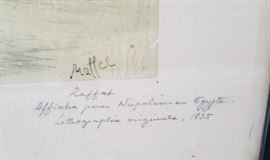 Raffet
Raffet
Affiche pour Napoléon en Egypte.
Lithographie originale, 1835